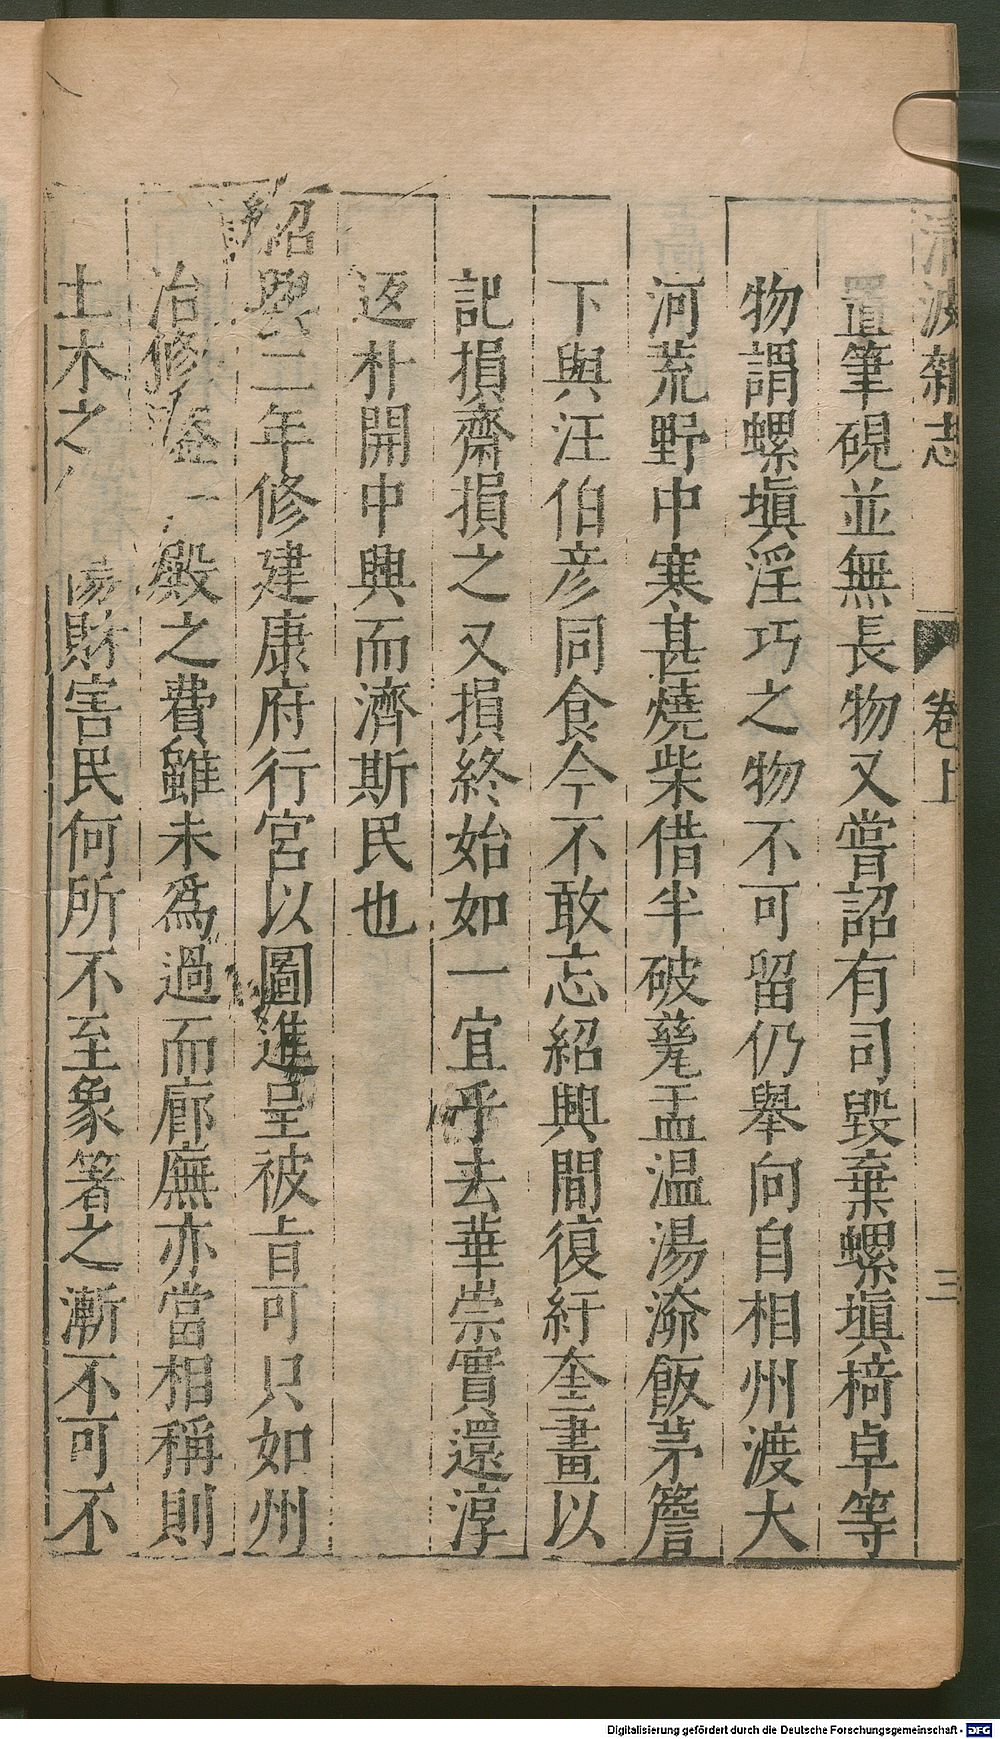 清波雜志 卷上 三
置筆硯並無長物又嘗詔有司毀棄螺塡椅卓等
物謂螺塡淫巧之物不可留仍舉向自相州渡大
河荒野中寒甚燒柴借半破甆盂温湯㴜飯茅簷
下與汪伯彦同食今不敢忘紹興間復紆奎畫以
記損齋損之又損終始如一宜乎去華崇實還淳
返朴開中興而濟斯民也
紹興二年修建康府行宮以圖進呈被㫖可只如州
治修蓋一殿之費雖未爲過而廊廡亦當相稱則
土木之 傷財害民何所不至象箸之漸不可不
Digitalisierung gefördert durch die Deutsche Forschungsgemeinschaft - DFG